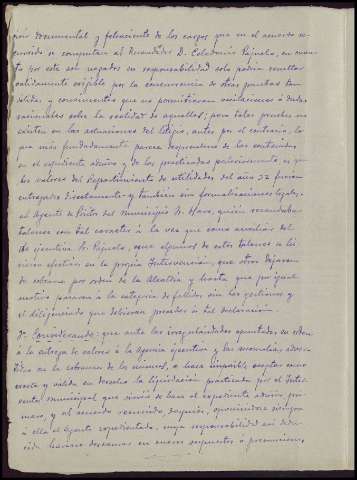 ción documental y fehaciente de los cargos que en el acuerdo re-
currido se computan al Recaudador D. Celedonio Pajuelo, en cuan-
to por este son negados su responsabilidad solo podria resultar
validamente exigible por la concurrencia de otras pruebas tan
sólidas y convincentes que no permitieran vacilaciones ó dudas
racionales sobre la realidad de aquellos; pero tales pruebas no
existen en las actuaciones del litigio, antes por el contrario, lo
que más fundadamente parece desprenderse de las contenidas
en el expediente admvo y de las practicadas posteriormente es que
los valores del Repartimiento de utilidades del año 32 fueron
entregados directamente y también sin formalizaciones legales,
al Agente del municipio Sr. Haro, quién recaudaba
talones con tal caracter á la vez que como auxiliar del
Sr. Pajuelo, como algunos de estos talones se hi-
cieron efectivos en la propia Intervención, que otros dejaron
de cobrarse por orden de la Alcaldía y hasta que por igual
motivo pasaron á la categoria de fallidos sin las gestiones y
el diligenciado que debieran preceder á tal declaración.
Considerando: que ante las irregularidades apuntadas, en orden
á la entrega de valores á la Agencia ejecutiva y las anomalías adver-
tidas en la cobranza de los mismos, se hace imposible aceptar como
cierta y valida en derecho la liquidación practicada por el Inter-
ventor municipal que sirvió de base al expediente admvo pri-
mero, y al acuerdo recurrido, después, oponiéndose siempre
á ella el Agente expedientado, cuya responsabilidad así dedu-
cida habría de basarse en meros supuestos ó presunciones,